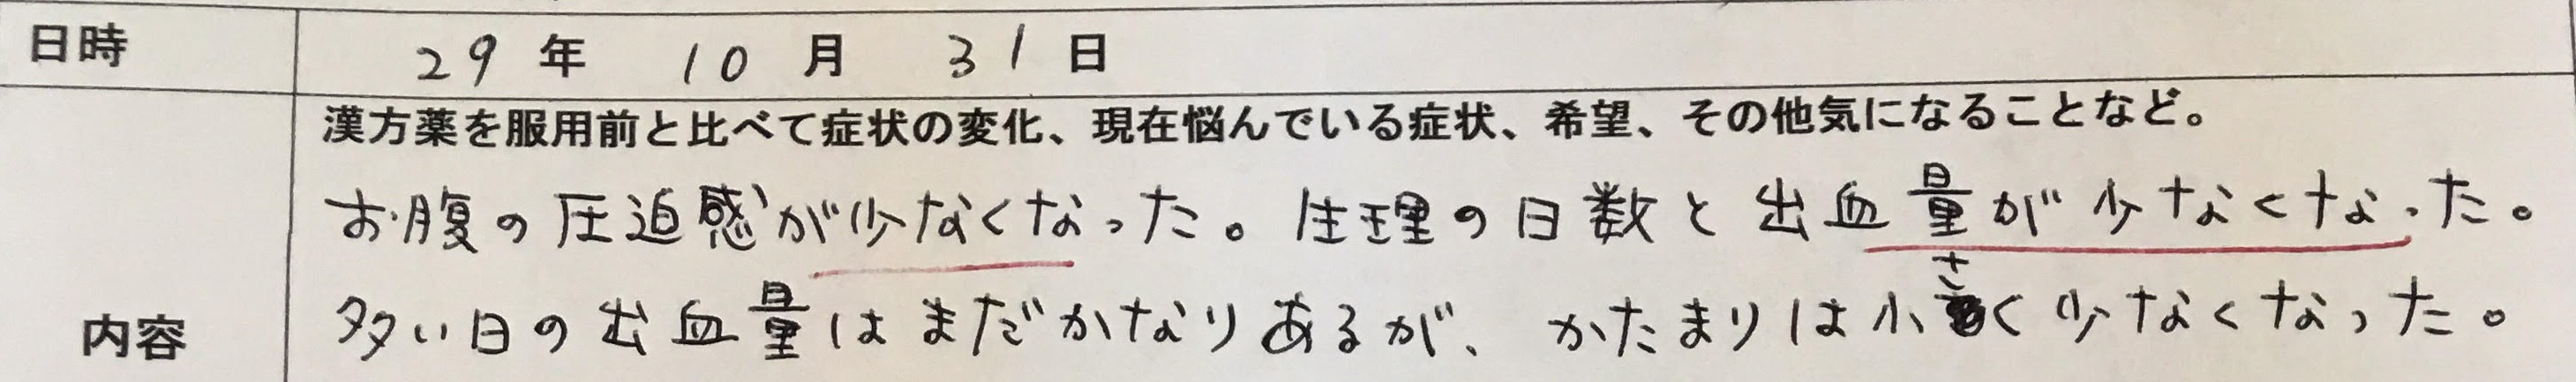 日時 29年 10月 31日
漢方薬を服用前と比べて症状の変化、現在悩んでいる症状、希望、その他気になることなど。
お腹の圧迫感が少なくなった。生理の日数と出血量が少なくなった。
内容 多い日の出血量はまだかなりあるが、かたまりは小さく少なくなった。